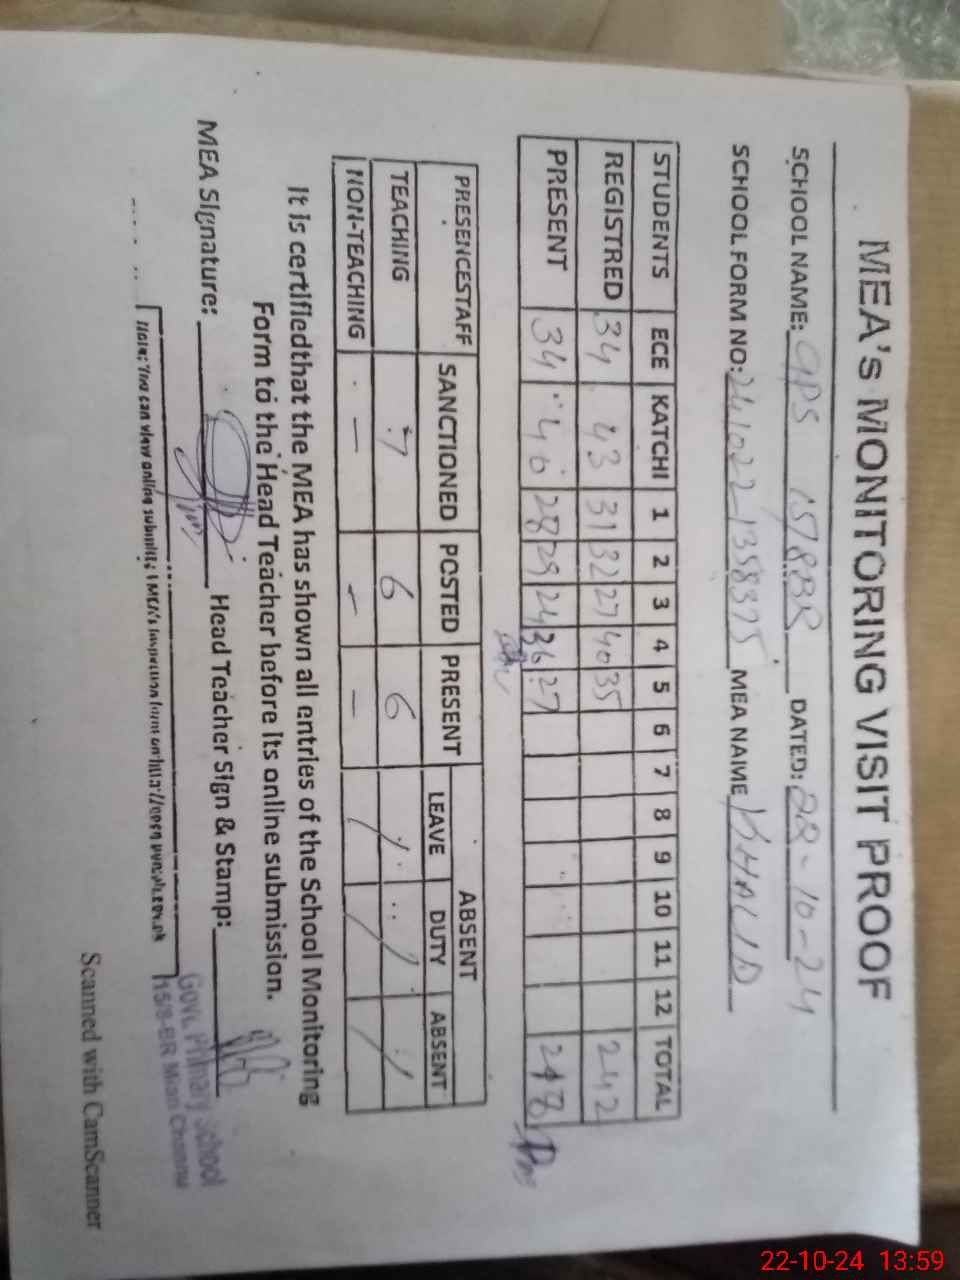 MEA's MONITORING VISIT PROOF
SCHOOL NAME: GPS 15/8BR DATED: 22-10-24
SCHOOL FORM NO: 241022-1358375 MEA NAME KHALID
STUDENTS ECE KATCHI 1 2 3 4 5 6 7 8 9 10 11 12 TOTAL
REGISTRED 34 43 31 32 27 40 35 242
PRESENT 34 40 28 29 24 36 27 218
PRESENCESTAFF SANCTIONED POSTED PRESENT ABSENT
LEAVE DUTY ABSENT
TEACHING 7 6 6 / / /
NON-TEACHING - - - / /
It is certifiedthat the MEA has shown all entries of the School Monitoring
Form to the Head Teacher before its online submission.
MEA Signature: Head Teacher Sign & Stamp:
Govt. Primary School
15/8-BR Mian Channu
Note: You can view online submitted MEA's Inspection form on
Scanned with CamScanner
22-10-24 13:59